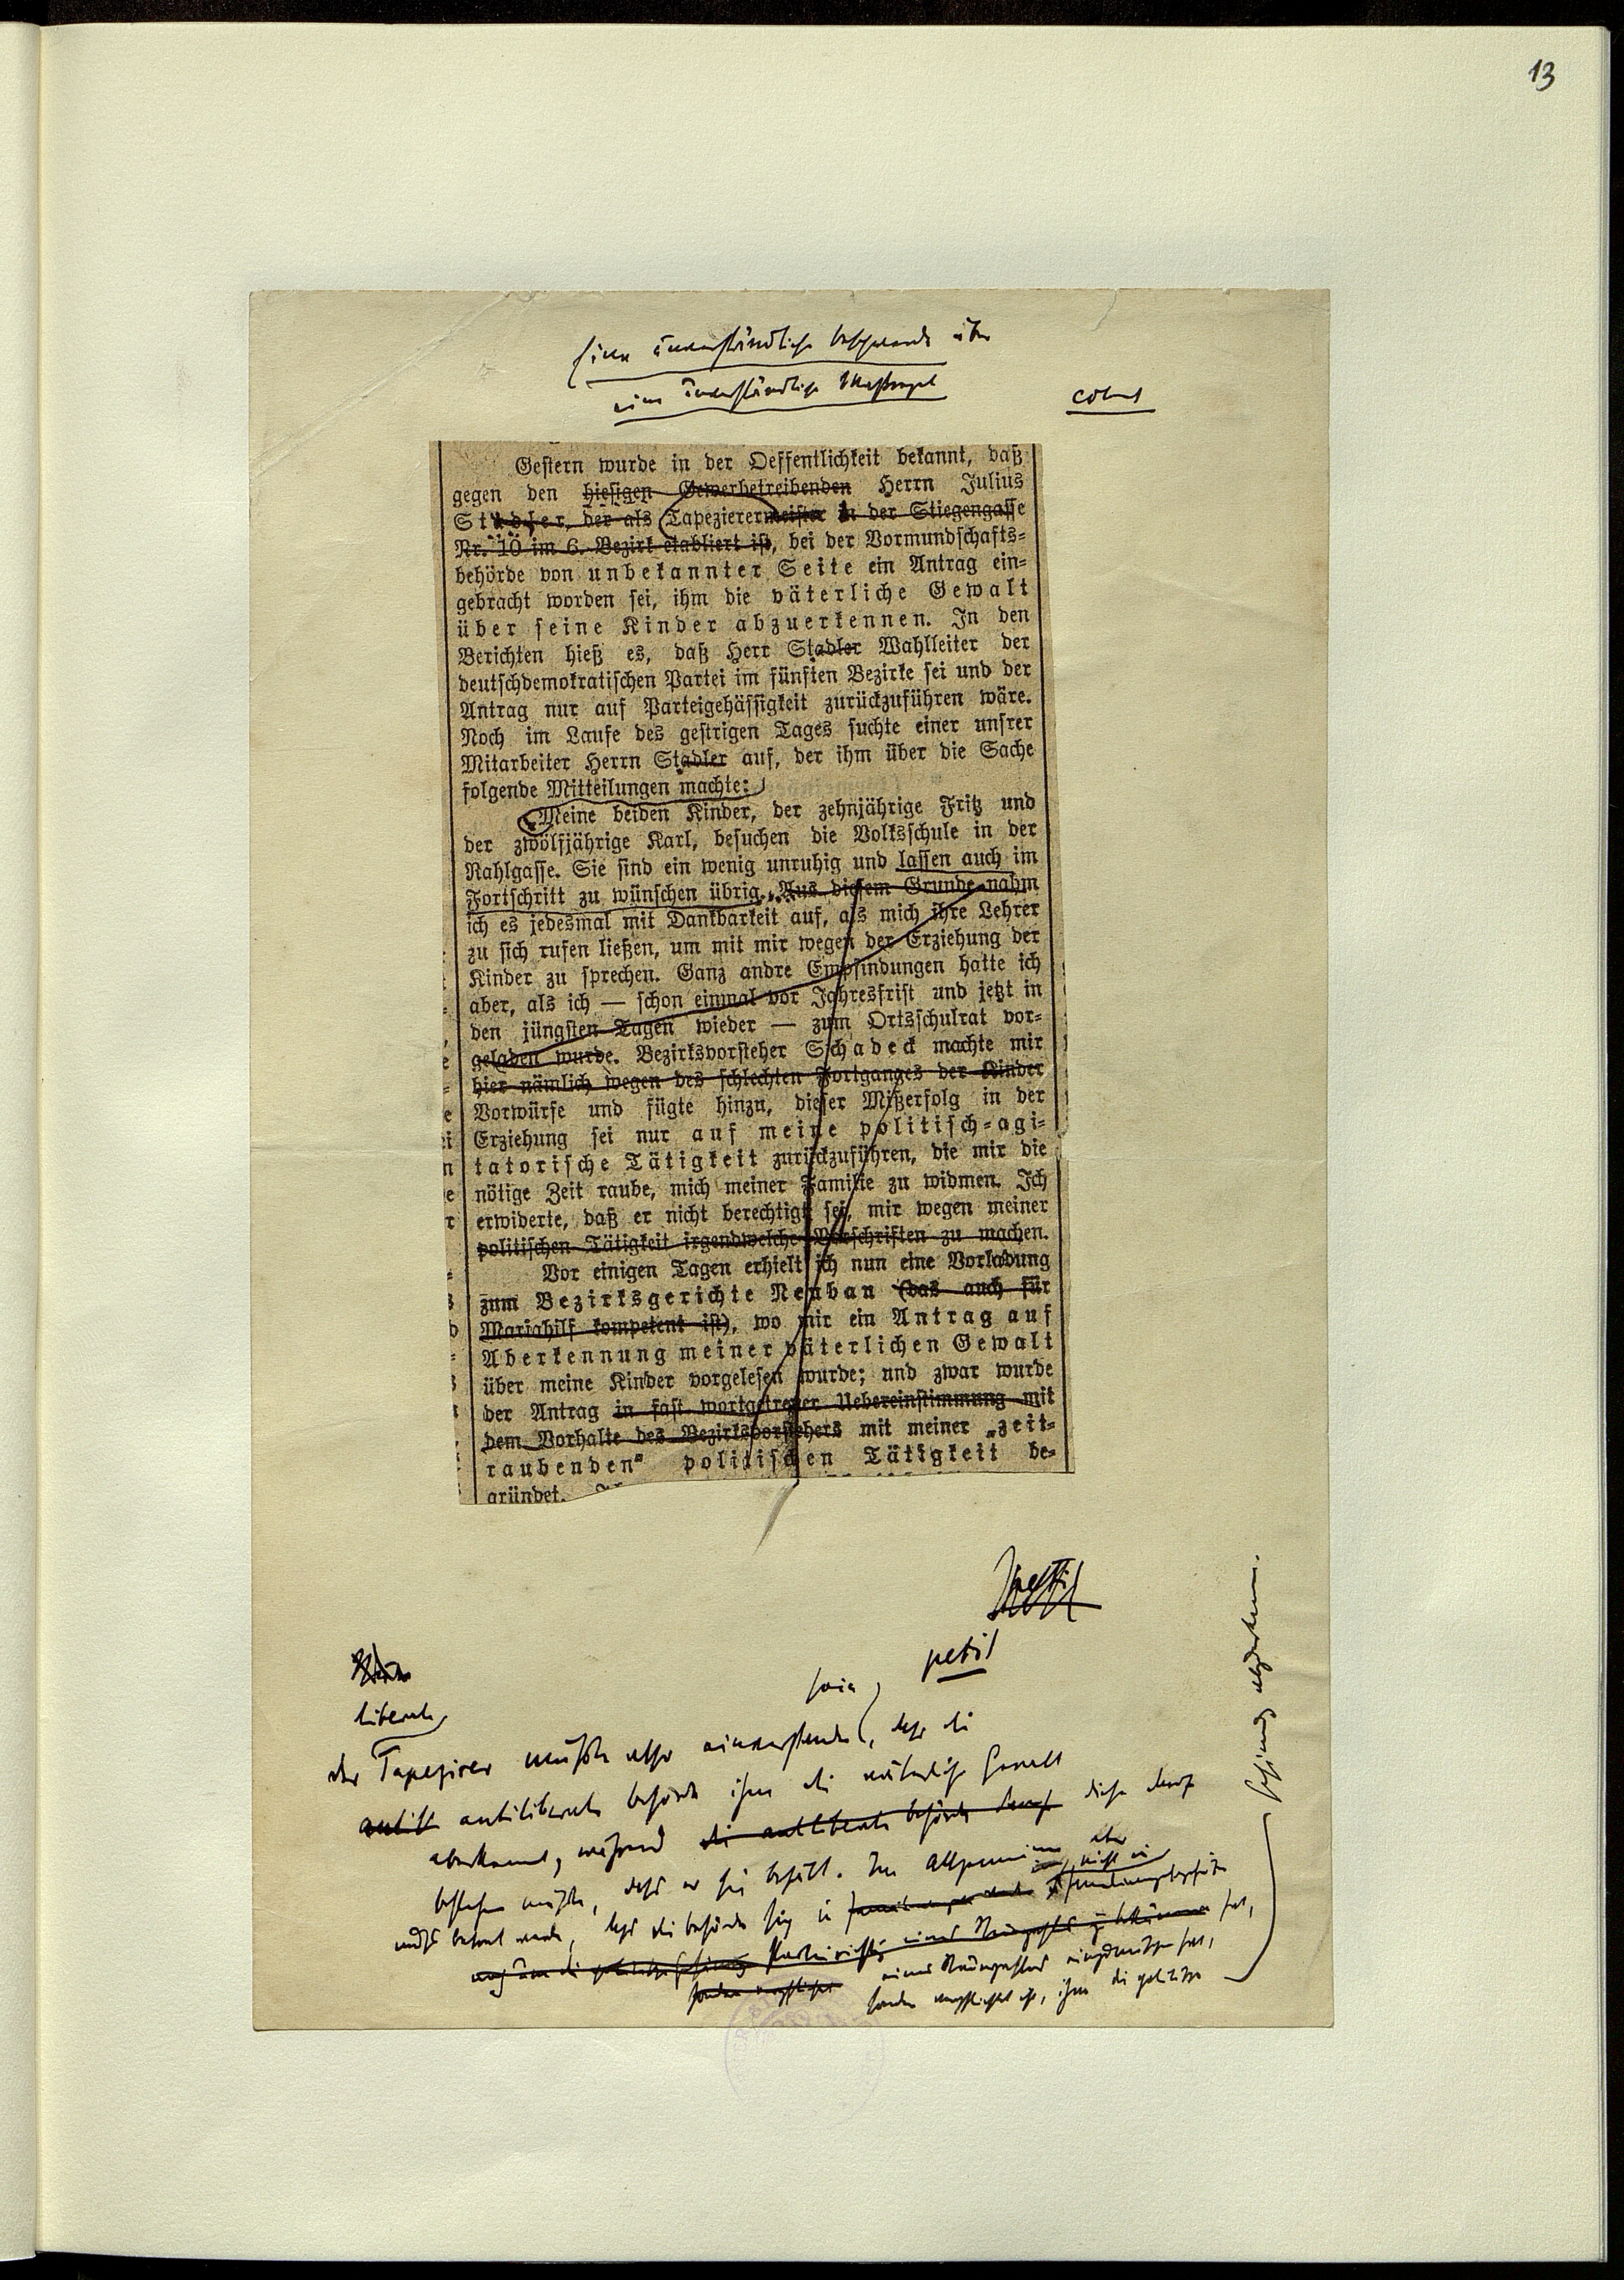 13
Eine unverständliche Beschwerde über
eine unverständliche Maßregel
Gestern wurde in der Oeffentlichkeit bekannt, daß
gegen den hiesigen Gewerbetreibenden Herrn Julius
Stadler, der als Tapezierermeister in der Stiegengasse
Nr. 10 im 6. Bezirk etabliert ist, bei der Vormundschafts-
behörde von unbekannter Seite ein Antrag ein-
gebracht worden sei, ihm die väterliche Gewalt
über seine Kinder abzuerkennen. In den
Berichten hieß es, daß Herr Stadler Wahlleiter der
deutschdemokratischen Partei im fünften Bezirke sei und der
Antrag nur auf Parteigehässigkeit zurückzuführen wäre.
Noch im Laufe des gestrigen Tages suchte einer unsrer
Mitarbeiter Herrn Stadler auf, der ihm über die Sache
folgende Mitteilungen machte:
„Meine beiden Kinder, der zehnjährige Fritz und
der zwölfjährige Karl, besuchen die Volksschule in der
Rahlgasse. Sie sind ein wenig unruhig und lassen auch im
Fortschritt zu wünschen übrig. Aus diesem Grunde nahm
ich es jedesmal mit Dankbarkeit auf, als mich ihre Lehrer
zu sich rufen ließen, um mit mir wegen der Erziehung der
Kinder zu sprechen. Ganz andre Empfindungen hatte ich
aber, als ich — schon einmal vor Jahresfrist und jetzt in
den jüngsten Tagen wieder — zum Ortsschulrat vor-
geladen wurde. Bezirksvorsteher Schadeck machte mir
hier nämlich wegen des schlechten Fortganges der Kinder
Vorwürfe und fügte hinzu, dieser Mißerfolg in der
Erziehung sei nur auf meine politisch-agi-
tatorische Tätigkeit zurückzuführen, die mir die
nötige Zeit raube, mich meiner Familie zu widmen. Ich
erwiderte, daß er nicht berechtigt sei, mir wegen meiner
politischen Tätigkeit irgendwelche Vorschriften zu machen.
Vor einigen Tagen erhielt ich nun eine Vorladung
zum Bezirksgerichte Neubau (das auch für
Mariahilf kompetent ist), wo mir ein Antrag auf
Aberkennung meiner väterlichen Gewalt
über meine Kinder vorgelesen wurde; und zwar wurde
der Antrag in fast wortgetreuer Uebereinstimmung mit
dem Vorhalte des Bezirksvorstehers mit meiner „zeit-
raubenden" politischen Tätigkeit be-
gründet.
petit
liberale
sein
der Tapezirer müßte also einverstanden, daß die
antilib antiliberale Behörde ihm die väterliche Gewalt
aberkennt, während die antiliberale Behörde darauf diese darauf
bestehen müßte, daß er sie behält. Im Allgemeinen aber
muß betont werden, daß die Behörde sich nicht in
sondern verpflichtet ist, ihm die politische
Gesinnung abzuerkennen.